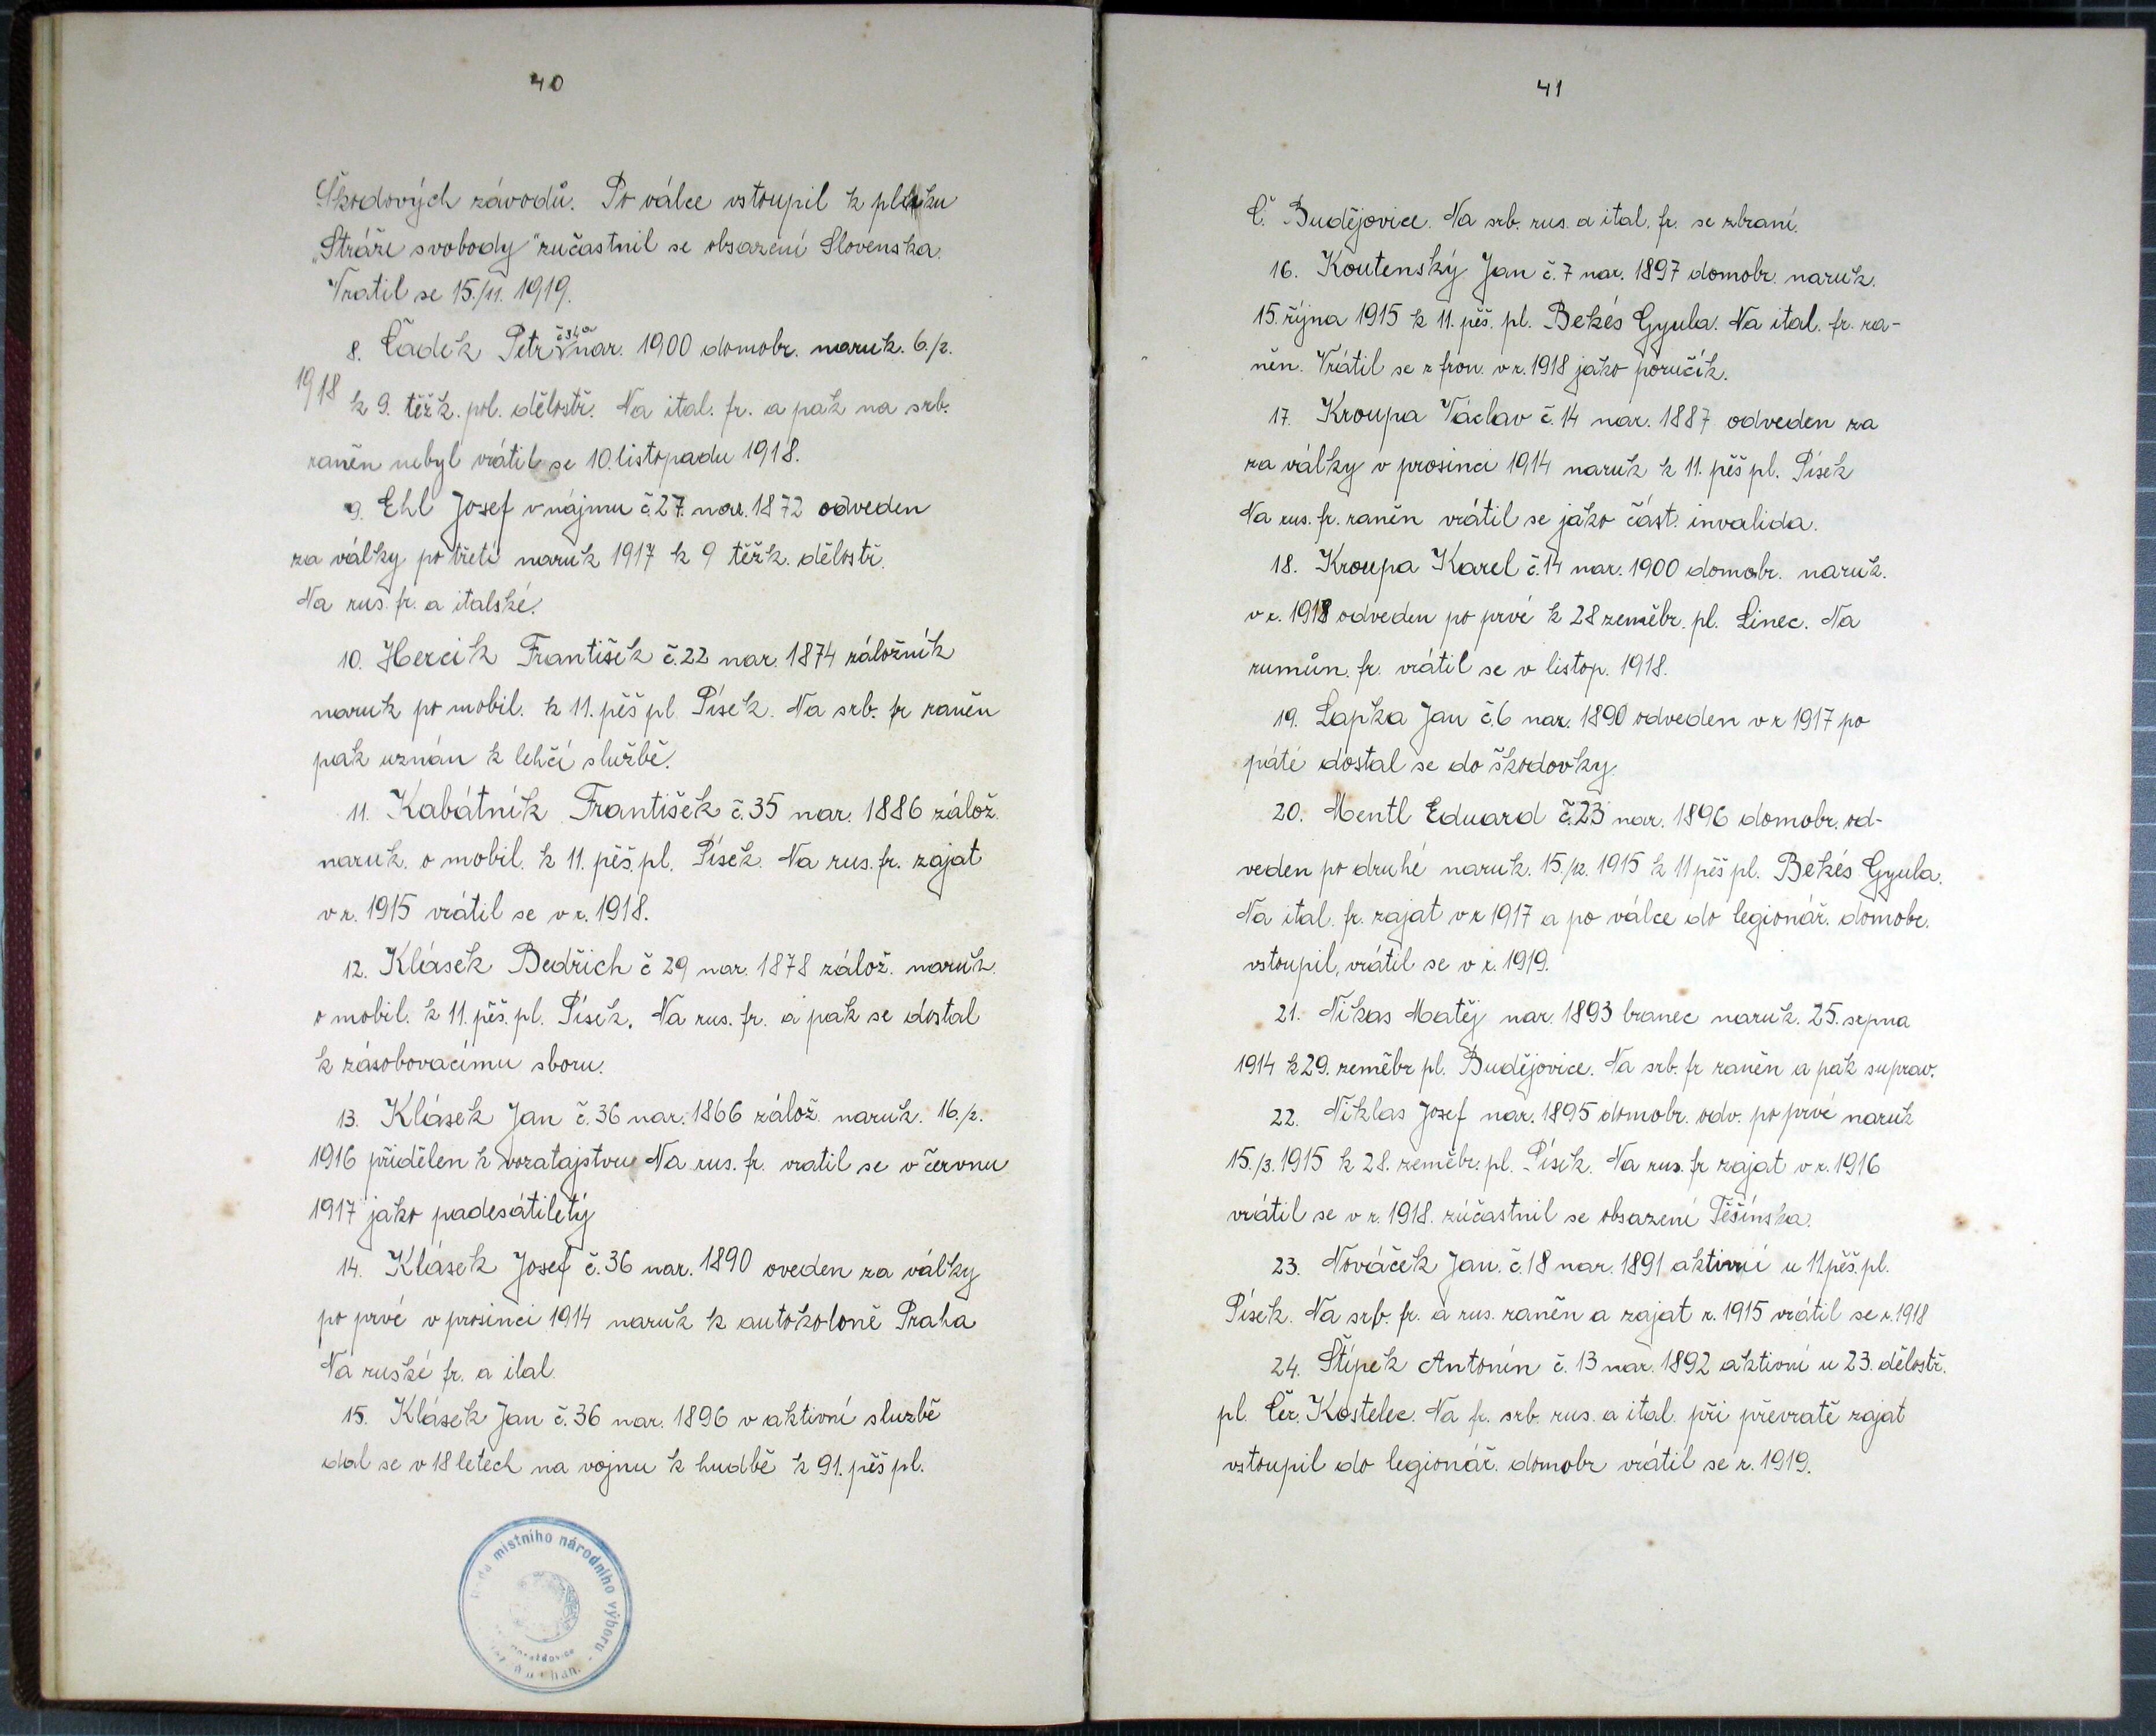 40
Škodových závodů. Po válce vstoupil k pluku
„Stráže svobody" zučastnil se obsazení Slovenska.
Vratil se 15./11. 1919.
8. Čadek Petr nar. 1900 domobr. naruk. 6./2.
1918 k 9. těžk. pol. dělostř. Na ital. fr. a pak na srb.
raněn nebyl vrátil se 10. listopadu 1918.
9. Ehl Josef v nájmu č.27. nar. 1872 odveden
za války po třetí naruk 1917 k 9 těžk. dělostř.
Na rus. fr. a italské.
10. Hercik František č.22 nar. 1874 záložník
naruk po mobil. k 11. pěš pl. Písek. Na srb. fr raněn
pak uznán k lehčí službě.
11. Kabátník František č.35 nar. 1886 zálož.
naruk. o mobil. k 11. pěš. pl. Písek. Na rus. fr. zajat
v r. 1915 vrátil se v r. 1918.
12. Klásek Bedřich č 29 nar. 1878 zálož. naruk.
o mobil. k 11. pěš. pl. Písek. Na rus. fr. a pak se dostal
k zásobovacímu sboru.
13. Klásek Jan č.36 nar. 1866 zálož. naruk. 16./2.
1916 přidělen k vozatajstvu Na rus. fr. vratil se v červnu
1917 jako padesátiletý
14. Klásek Josef č.36 nar. 1890 oveden za války
po prvé v prosinci 1914 naruk k autokoloně Praha
Na ruské fr. a ital.
15. Klásek Jan č.36 nar. 1896 v aktivní službě
dal se v 18 letech na vojnu k hudbě k 91. pěš pl.
místního národního výboru
41
Č. Budějovice. Na srb. rus. a ital. fr. se zbraní.
16. Koutenský Jan č.7 nar. 1897 domobr. naruk.
15. října 1915 k 11. pěš. pl. Bekés Gyula. Na ital. fr. ra-
něn. Vrátil se z fron. v r. 1918 jako poručík.
17. Kroupa Václav č.14 nar. 1887 odveden za
za války v prosinci 1914 naruk k 11. pěš pl. Písek
Na rus. fr. raněn vrátil se jako část. invalida.
18. Kroupa Karel č.14 nar. 1900 domobr. naruk.
v r. 1918 odveden po prvé k 28 zeměbr. pl. Linec. Na
rumůn. fr. vrátil se v listop. 1918.
19. Lapka Jan č.6 nar. 1890 odveden v r 1917 po
páté dostal se do škodovky.
20. Mentl Eduard č.23 nar. 1896 domobr. od-
veden po druhé naruk. 15./2. 1915 k 11 pěš pl. Bekés Gyula.
Na ital. fr. zajat v r 1917 a po válce do legionář. domobr.
vstoupil, vrátil se v r. 1919.
21. Nikas Matěj nar. 1893 branec naruk. 25. srpna
1914 k 29. zeměbr pl. Budějovice. Na srb. fr raněn a pak suprav.
22. Niklas Josef nar. 1895 domobr. odv. po prvé naruk
15./3. 1915 k 28. zeměbr. pl. Písek. Na rus. fr zajat v r. 1916
vrátil se v r. 1918. zúčastnil se obsazení Těšínska.
23. Nováček Jan. č.18 nar. 1891 aktivní u 11. pěš. pl.
Písek. Na srb. fr. a rus. raněn a zajat r. 1915 vrátil se r. 1918
24. Štípek Antonín č. 13 nar. 1892 aktivní u 23. dělostř.
pl. Čer. Kostelec. Na fr. srb. rus. a ital. při převratě zajat
vstoupil do legionář. domobr vrátil se r. 1919.